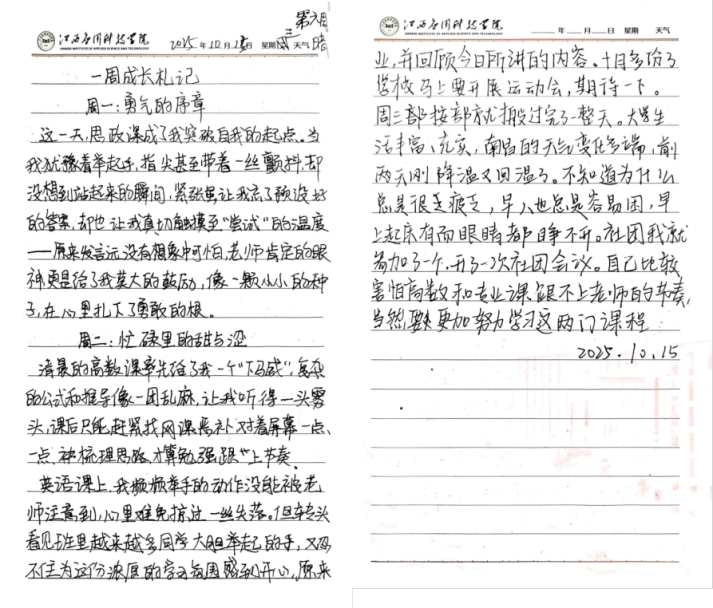 第六周
江西应用科技学院
JIANGXI INSTITUTE OF APPLIED SCIENCE AND TECHNOLOGY
2025年10月15日 星期三 天气晴
一周成长札记
周一:勇气的序章
这一天,思政课成了我突破自我的起点。当
我犹豫着举起手,指尖甚至带着一丝颤抖,却
没想到站起来的瞬间,紧张虽让我忘了预设好
的答案,却也让我真切触摸到“尝试”的温度
——原来发言远没有想象中可怕,老师肯定的眼
神更是给了我莫大的鼓励,像一颗小小的种
子,在心里扎下了勇敢的根。
周二:忙碌里的甜与涩
清晨的高数课率先给了我一个“下马威”,复杂
的公式和推导像一团乱麻,让我听得一头雾
头,课后只能赶紧找网课恶补,对着屏幕一点
一点梳理思路,才算勉强跟“上节奏。
英语课上,我频频举手的动作没能被老
师注意到,心里难免掠过一丝失落。但转头
看见班里越来越多同学大胆举起的手,又忍
不住为这份浓厚的学习氛围感到开心,原来
江西应用科技学院
JIANGXI INSTITUTE OF APPLIED SCIENCE AND TECHNOLOGY
年 月 日 星期 天气
业,并回顾今日所讲的内容。十月多份了
学校马上要开展运动会,期待一下。
周三部按部就搬过完了一整天。大学生
活丰富、充实,南昌的天气变化多端,前
两天刚降温又回温了。不知道为什么
总是很是疲乏,早八也总是容易困,早
上起床有而眼睛都睁不开。社团我就
参加了一个,开了一次社团会议。自己比较
害怕高数和专业课跟不上老师的节奏,
当然要更加努力学习这两门课程
2025.10.15